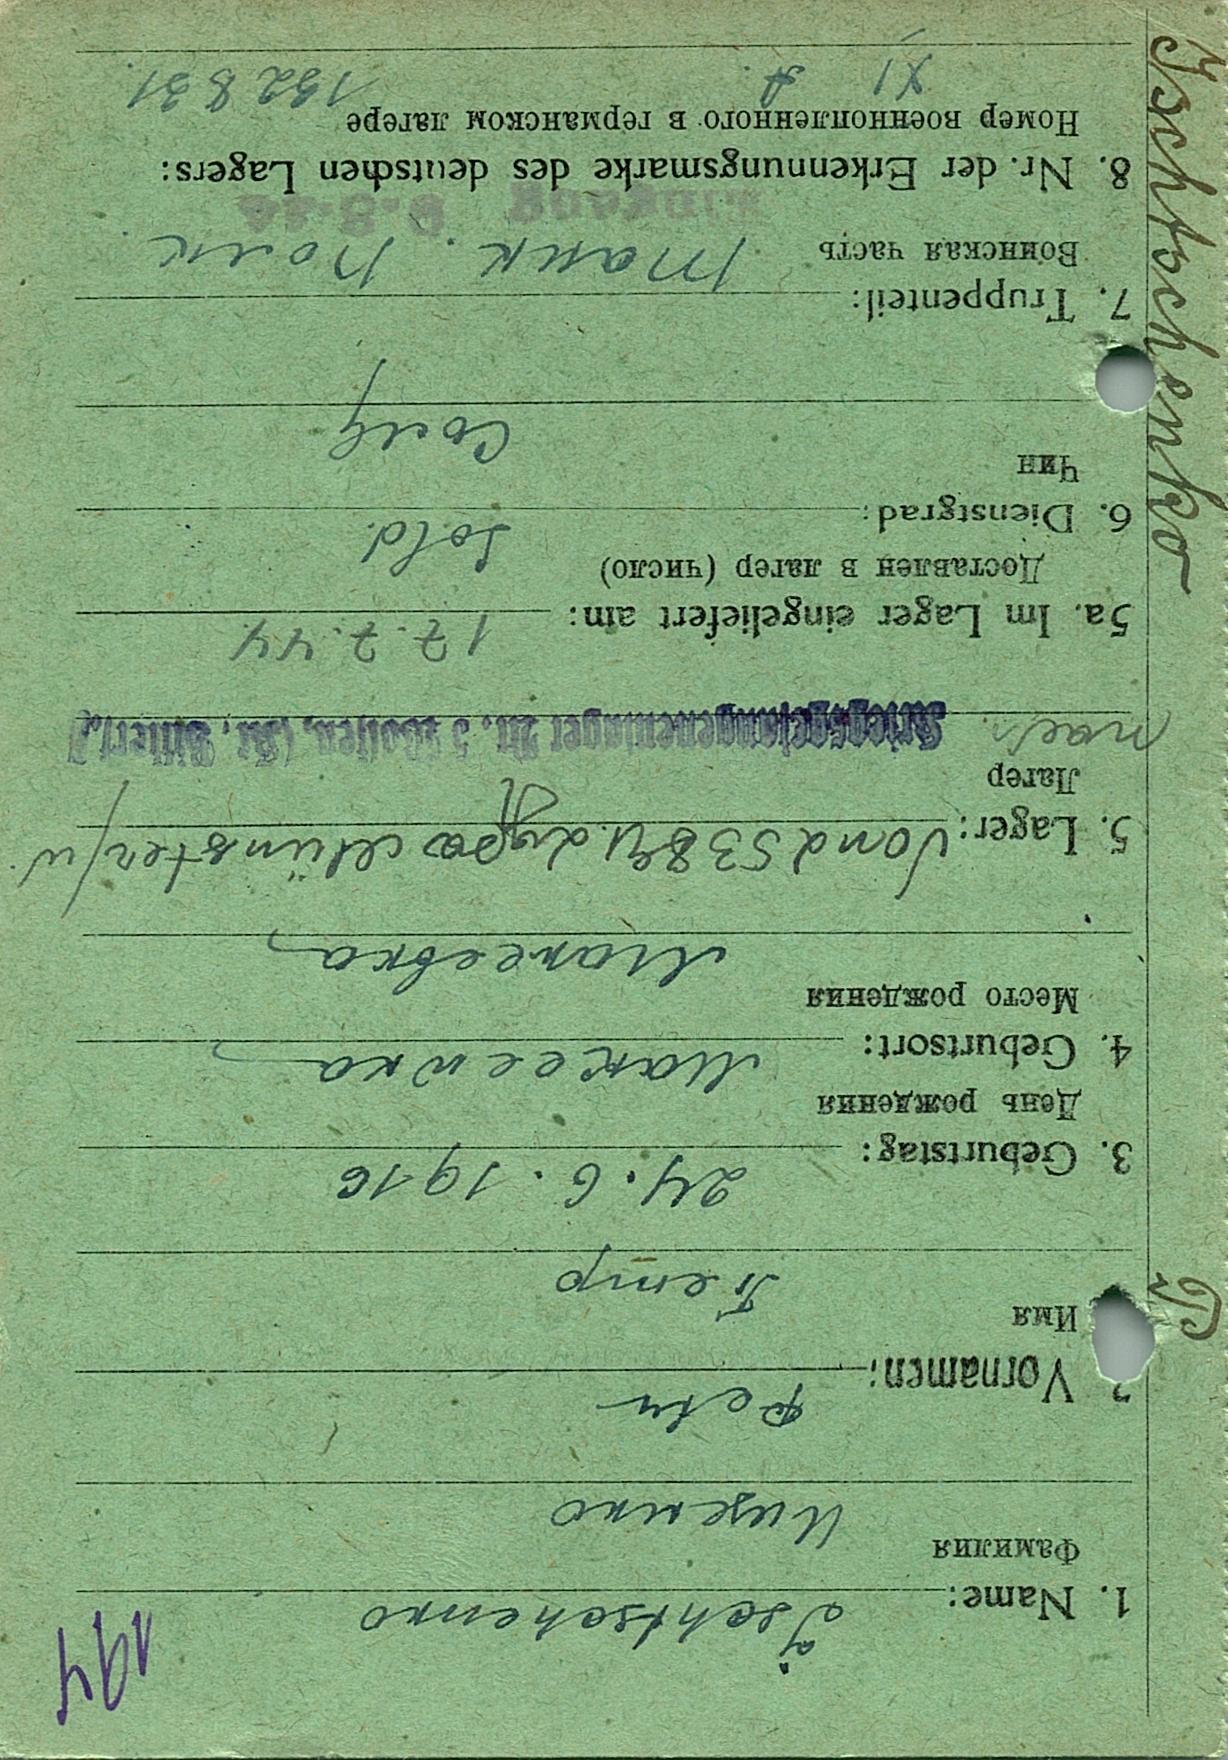 194
1. Name: Jschtschenko
Фамилия
Ищенко
2 Vornamen: Petr
Имя
Петр
3. Geburtstag: 24.6.1916
День рождения
4. Geburtsort: Макеевка
Место рождения
Макеевка
5. Lager: Münster/W.
Лагер
nach Kriegsgefangenenlager Nr. 3 Wolfen, (Kr. Bitterf.)
5a. Im Lager eingeliefert am: 17.7.44
Доставлен в лагер (число)
6. Dienstgrad: Sold.
Чин
Солд
7. Truppenteil:
Воинская часть Танк. Полк.
Eingang 9-8-44
8. Nr. der Erkennungsmarke des deutschen Lagers:
Номер военнопленного в германском лагере
XI A. 132831.
Jschtschenko